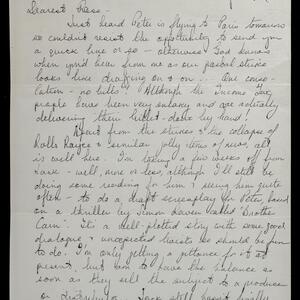 Dearest
Just heard Peter is flying to Paris tomorrow
so couldn't resist the opportunity to send you
a quick line or so - otherwise God knows
when you'd hear from me as our postal strike
looks like dragging on & on... One conso-
lation - no bills! Although the Income Tax
people have been very unlucky and are actually
delivering their by hand!
Apart from the strikes & the collapse of
Rolls Royce & similar jolly items of news, all
is well here. I'm taking a few weeks off from
- well, more or less, although I'll still be
doing some reading for him & seeing him quite
often - to do a draft screenplay for Peter, based
on a thriller by Simon Raven called "Brother
Cain". It's a well-plotted story with some good
dialogue & unexpected twists so should be fun
to do. I'm only getting a pittance for it at
present, but am to have the balance as
soon as they sell the subject to a producer
or distributor. Jack still hasn't finally